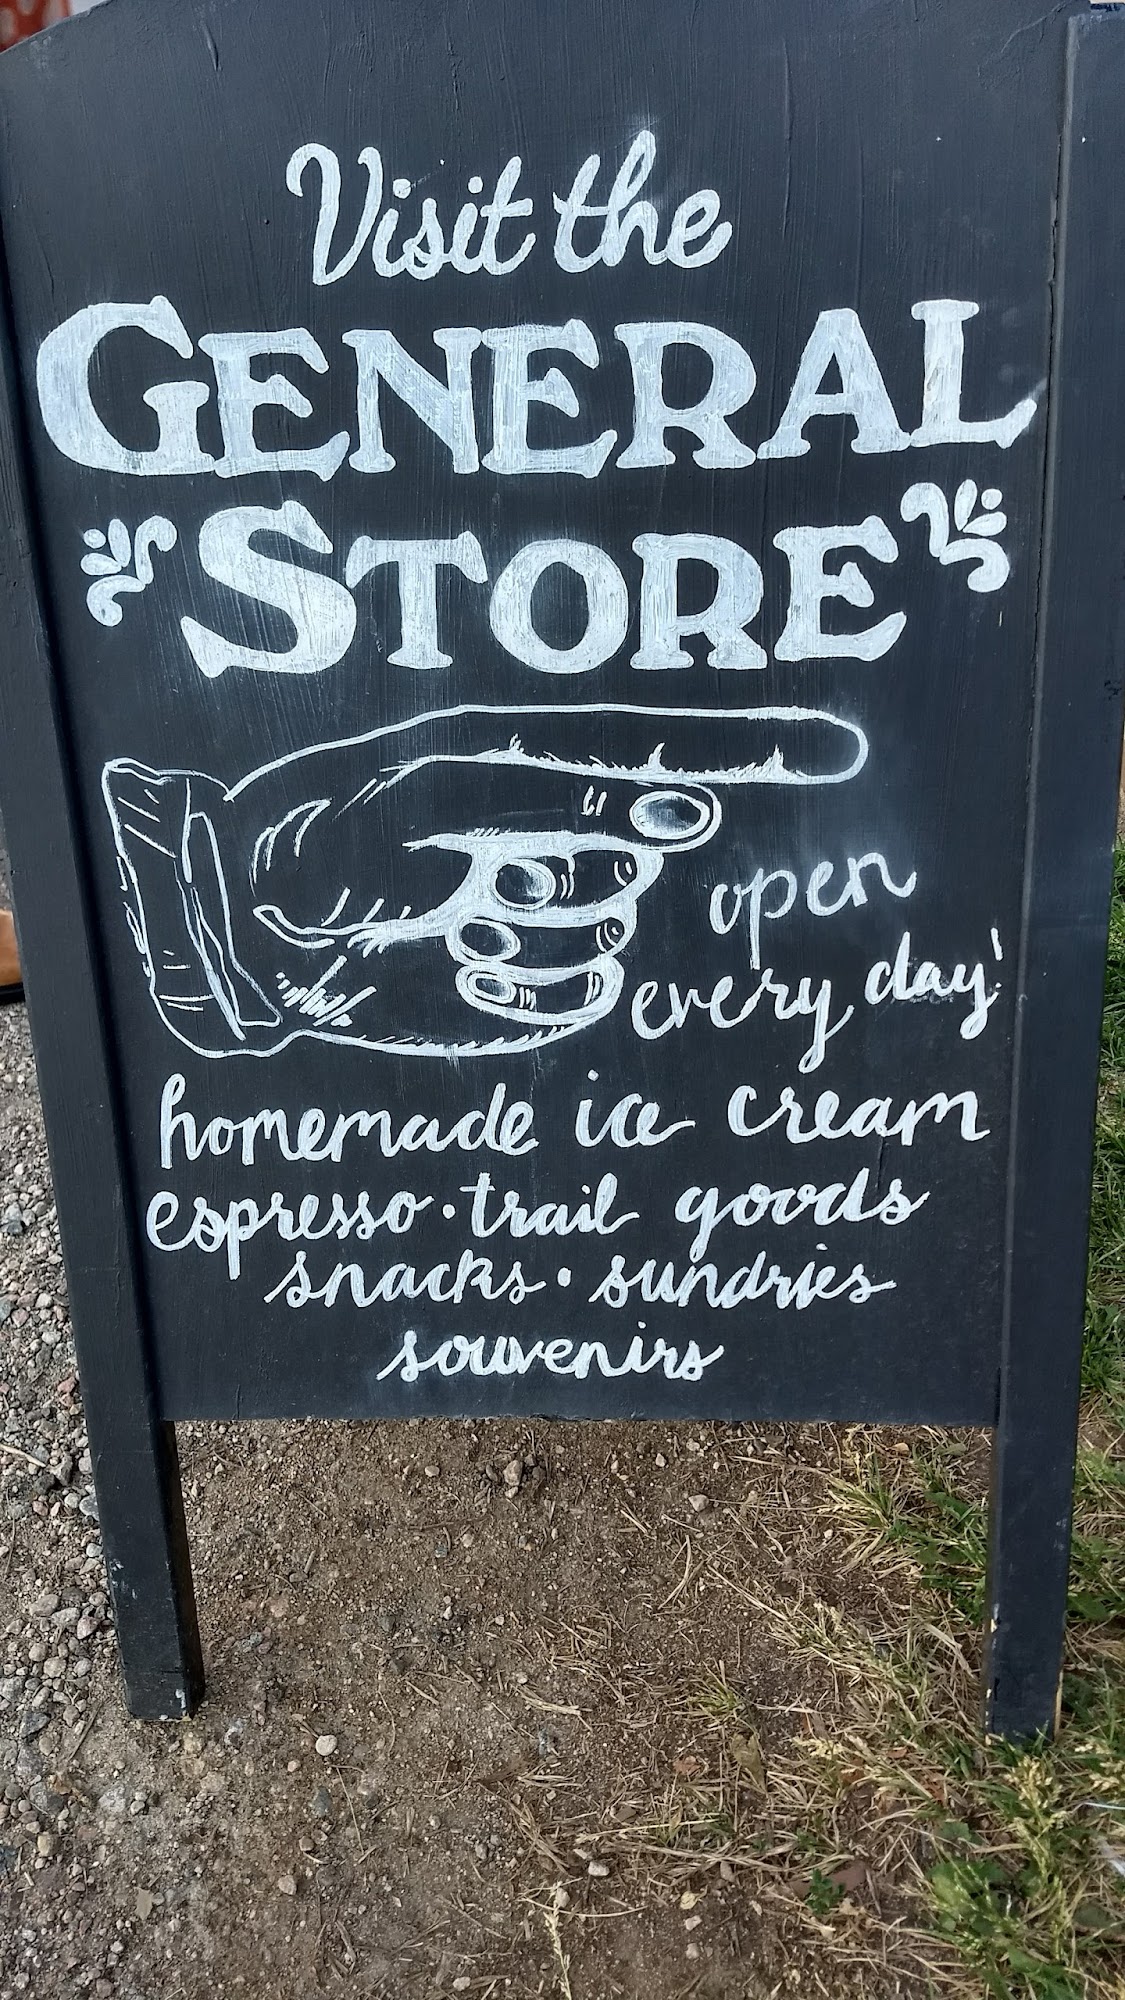 Visit the
GENERAL
STORE
open
every day!
homemade ice cream
espresso · trail goods
snacks · sundries
souvenirs